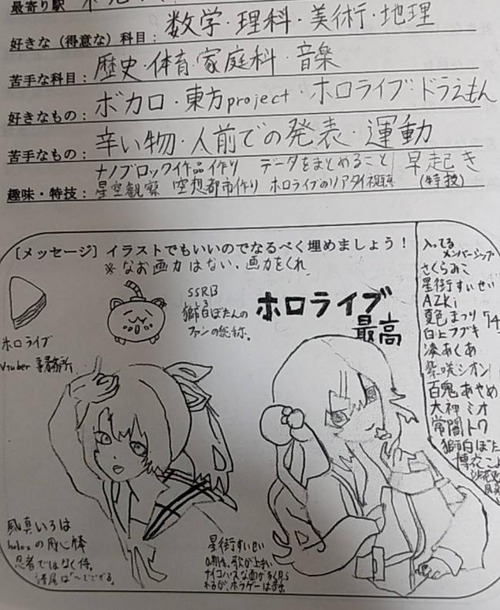 最寄り駅
好きな(得意な)科目: 数学・理科・美術・地理
苦手な科目: 歴史・体育・家庭科・音楽
好きなもの: ボカロ・東方project・ホロライブ・ドラえもん
苦手なもの: 辛い物・人前での発表・運動
趣味・特技: ナノブロック作品作り データをまとめること 早起き
星空観察 空想都市作り ホロライブのリアタイ視聴 (特技)
[メッセージ]イラストでもいいのでなるべく埋めましょう!
※なお画力はない、画力をくれ
ホロライブ
Vtuber事務所
SSRB
獅白ぼたんの
ファンの総称。
ホロライブ
最高
入ってる
メンバーシップ
さくらみこ
星街すいせい
AZKi
夏色まつり
白上フブキ
湊あくあ
紫咲シオン
百鬼あやめ
大神ミオ
常闇トワ
獅白ぼた
博衣こ
風真いろは
holoxの用心棒
忍者ではなく侍。
語尾は"〜でござる。
星街すいせい